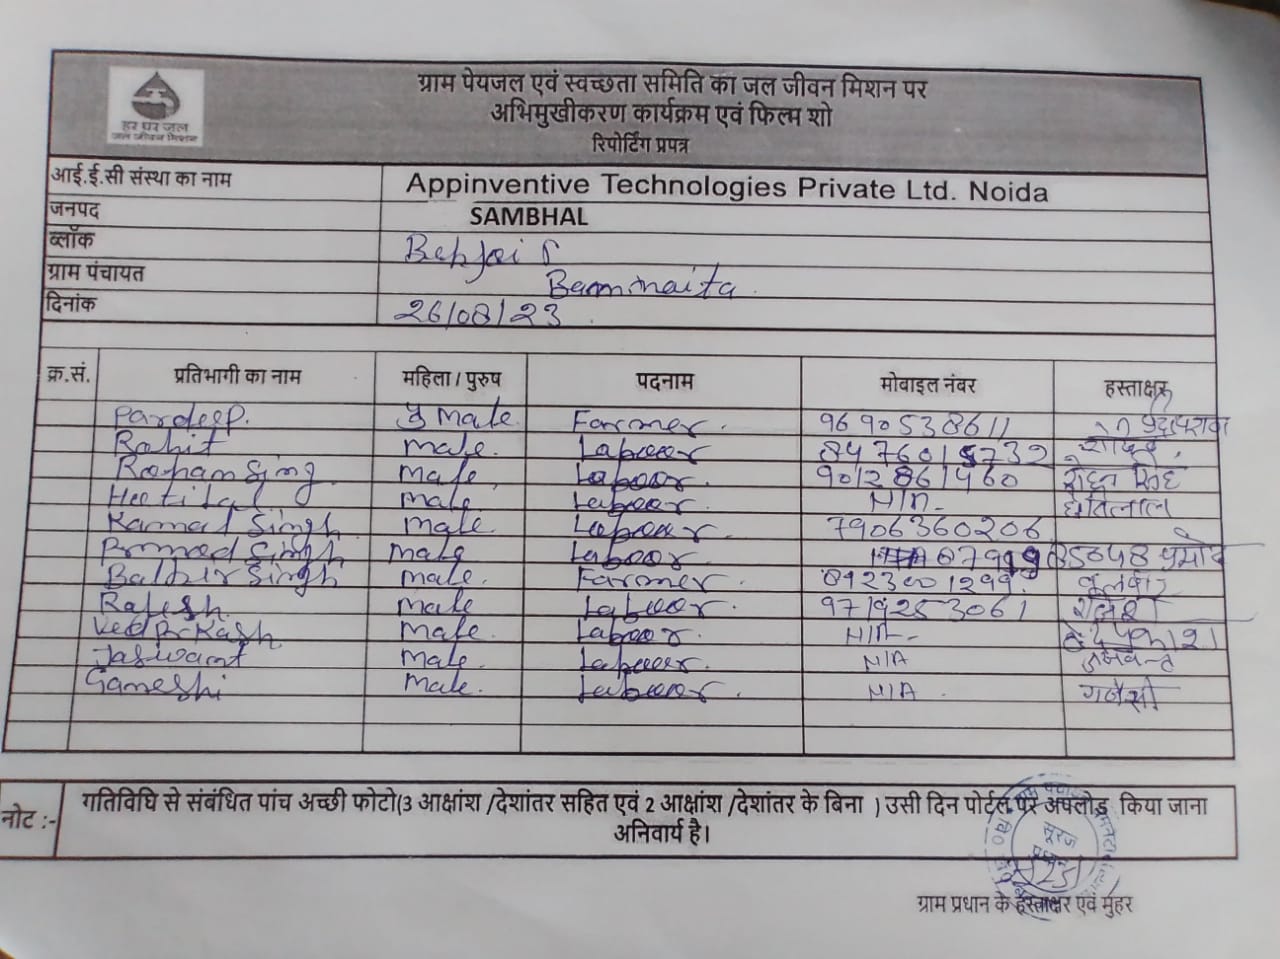 हर घर जल
जल जीवन मिशन
ग्राम पेयजल एवं स्वच्छता समिति का जल जीवन मिशन पर
अभिमुखीकरण कार्यक्रम एवं फिल्म शो
रिपोर्टिंग प्रपत्र
आई.ई.सी संस्था का नाम Appinventive Technologies Private Ltd. Noida
जनपद SAMBHAL
ब्लॉक
ग्राम पंचायत Bammnaita
दिनांक 26/08/23
क्र.सं. प्रतिभागी का नाम महिला / पुरुष पदनाम मोबाइल नंबर हस्ताक्षर
Pardeep. Male Farmer. 9690538611
Rohit male. Labour
Roohan Sing Male Laboor. 9012861460 रोहन सिंह
Heetilal Male Laboor N/A
Kamal Singh Male. Labour. 7906360206
Promod Singh Male Laboor प्रमोद
Balbir Singh Male. Farmer.
Rajesh. Male Labour. 9719253061 राजेश
Ved Prkash Male. Laboor. N/A वेद प्रकाश
Jaswant Male. Labour. N/A जसवन्त
Ganeshi Male. Labour. N/A गनेसी
नोट :- गतिविधि से संबंधित पांच अच्छी फोटो(3 आक्षांश /देशांतर सहित एवं 2 आक्षांश /देशांतर के बिना ) उसी दिन पोर्टल पर अपलोड किया जाना
अनिवार्य है।
सूरज
प्रधान
ग्राम प्रधान के हस्ताक्षर एवं मुहर